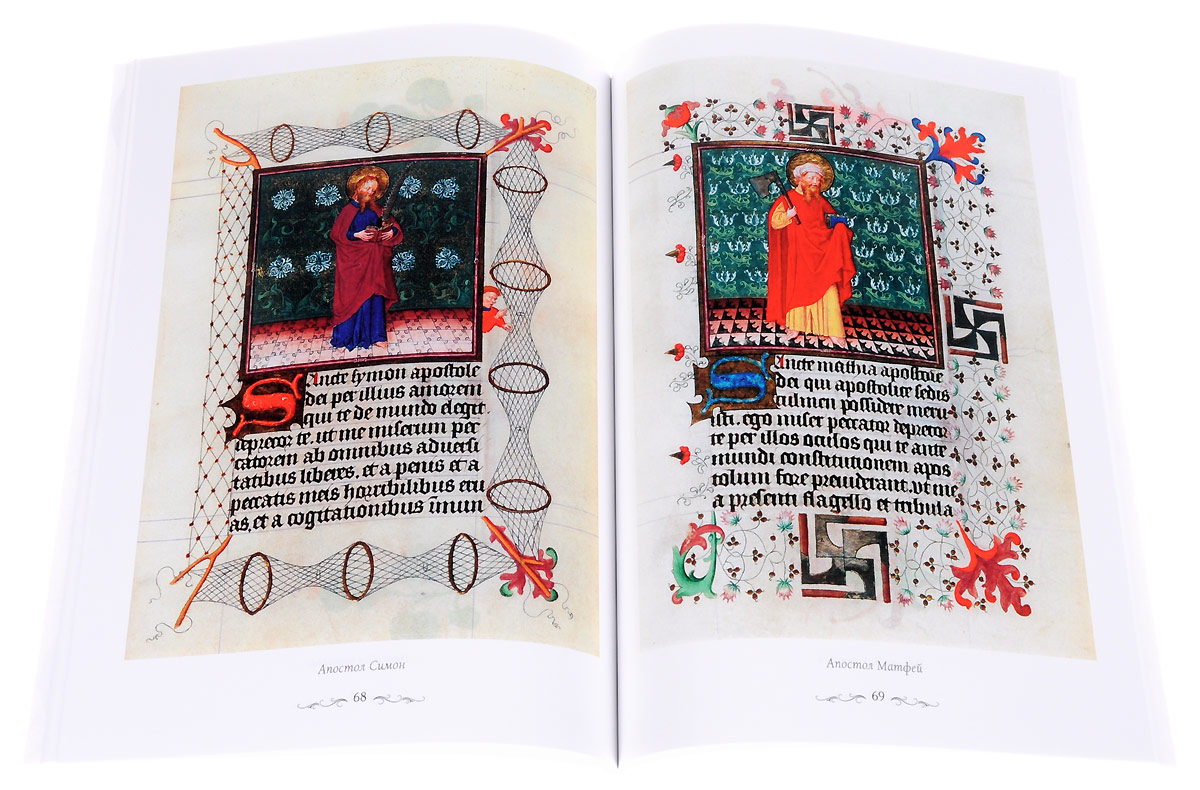 Sancte symon apostole
dei per illius amorem
qui te de mundo elegit.
deprecor te. ut me miserum pec
catorem ab omnibus aduersi
tatibus liberes. et a penis et a
peccatis meis horribilibus eru
as. et a cogitationibus inmun
Апостол Симон
68
Sancte mathia apostole
dei qui apostolice sedis
culmen possidere meru
isti. ego miser peccator deprecor
te per illos oculos qui te ante
mundi constitutionem apos
tolum fore preuiderant. vt me
a presenti flagello et tribula
Апостол Матфей
69